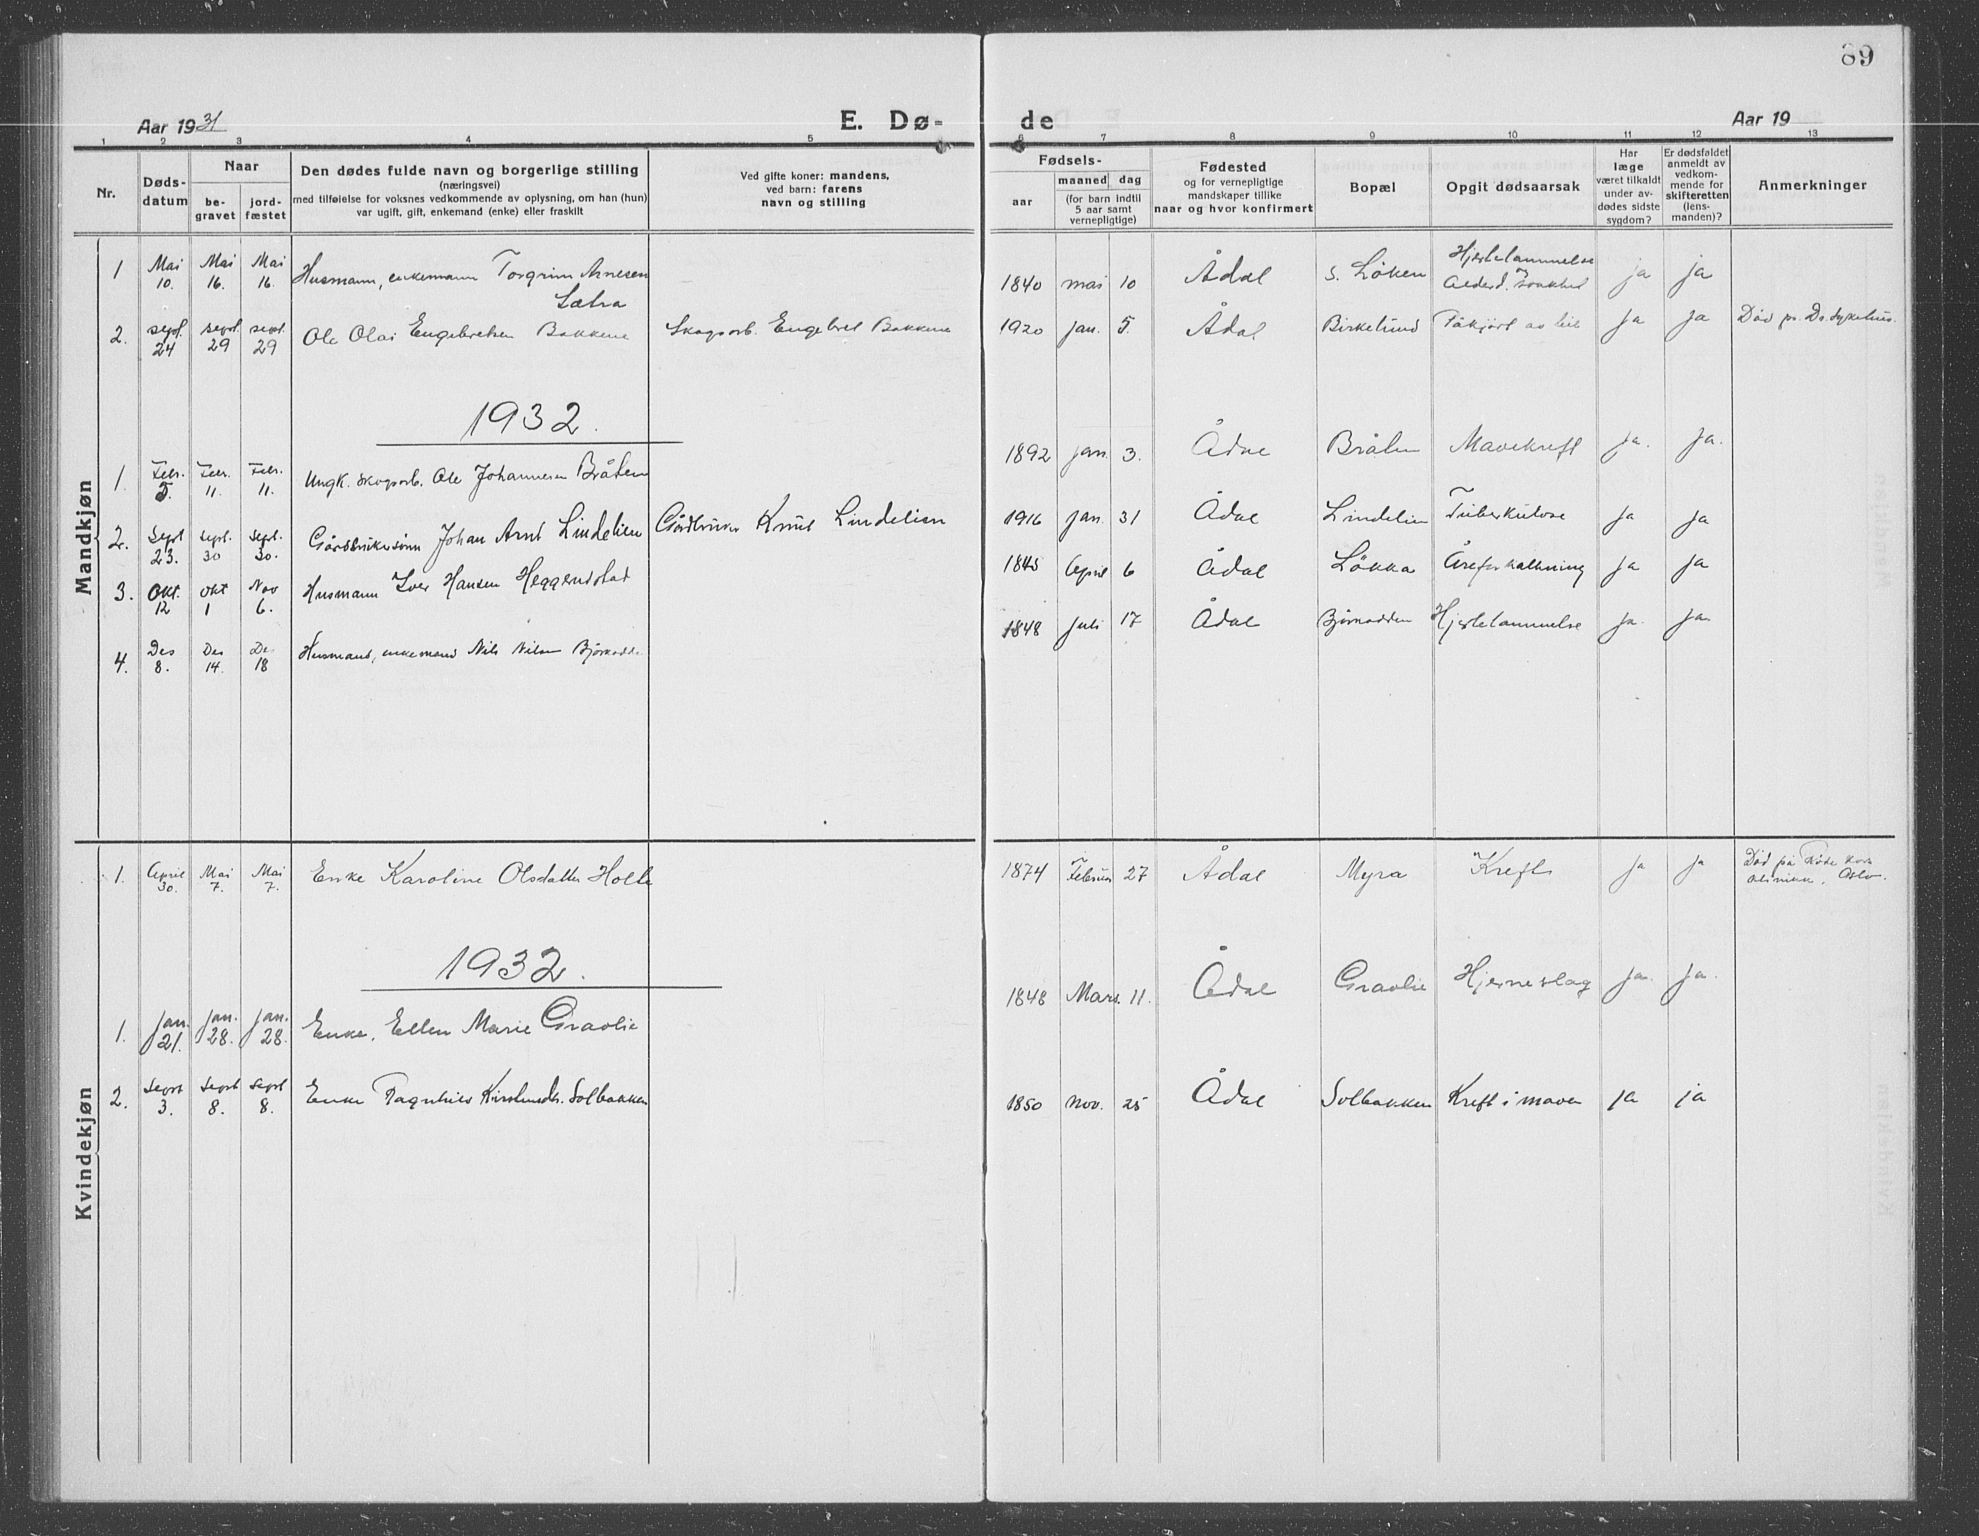 89
Aar 1931 E. Dø- de Aar 19
1 2 3 4 5 6 7 8 9 10 11 12 13
Nr.
Døds-
datum
Naar
be-
gravet
jord-
fæstet
Den dødes fulde navn og borgerlige stilling
(næringsvei)
med tilføielse for voksnes vedkommende av oplysning, om han (hun)
var ugift, gift, enkemand (enke) eller fraskilt
Ved gifte koner: mandens,
ved barn: farens
navn og stilling
Fødsels-
aar
maaned dag
(for barn indtil
5 aar samt
vernepligtige)
Fødested
og for vernepligtige
mandskaper tillike
naar og hvor konfirmert
Bopæl
Opgit dødsaarsak
Har
læge
været tilkaldt
under av-
dødes sidste
sygdom?
Er dødsfaldet
anmeldt av
vedkom-
mende for
skifteretten
(lens-
manden)?
Anmerkninger
Mandkjøn
1 Mai 10. Mai 16. Mai 16. Husmann, enkemann Torgrim Arnesen Sætra 1840 mai 10 Ådal s. Løken Hjertelammelse Alderd. ja ja
2. sept. 24 sept. 29 sept. 29 Ole Olai Engebretsen Bakkene Skogsarb. Engebret Bakkene 1920 jan. 5. Ådal Birkelund Påkjørt av bil ja ja Død på Dr. sykehus.
1932.
1. Febr. 5. Febr. 11. Febr. 11. Ungk. skogsarb. Ole Johannesen Bråten 1892 jan. 3. Ådal Bråten Mavekreft ja. ja.
2. Sept 23. sept. 30 sept. 30. Gårdbrukersønn Johan Arnt Lindelien Gårdbruker Knut Lindelien 1916 jan. 31 Ådal Lindelien Tuberkulose ja ja
3. Okt. 12 okt 1 Nov 6. Husmann Iver Hansen Heggendstad 1845 April 6 Ådal Løkka Åreforkalkning ja ja
4. Des 8. Des 14. De 18 Husmand, enkemand Nils Nilsen Bjørnodde 1848 juli 17 Ådal Bjørnodden Hjertelammelse ja. ja.
Kvindekjøn
1. April 30. Mai 7. Mai 7. Enke Karoline Olsdatter Holte 1874 Februar 27 Ådal Myra Kreft ja ja Død på Røde Kors klinikk, Oslo.
1932.
1. Jan. 21. Jan. 28. Jan. 28. Enke, Ellen Marie Gravlie 1848 Mars. 11. Ådal Gravlie Hjerneslag ja. ja.
2. Sept 3. Sept 8. Sept 8. Enke Ragnhild Kirstensdt. Solbakken 1850 nov. 25 Ådal Solbakken Kreft i maven ja ja